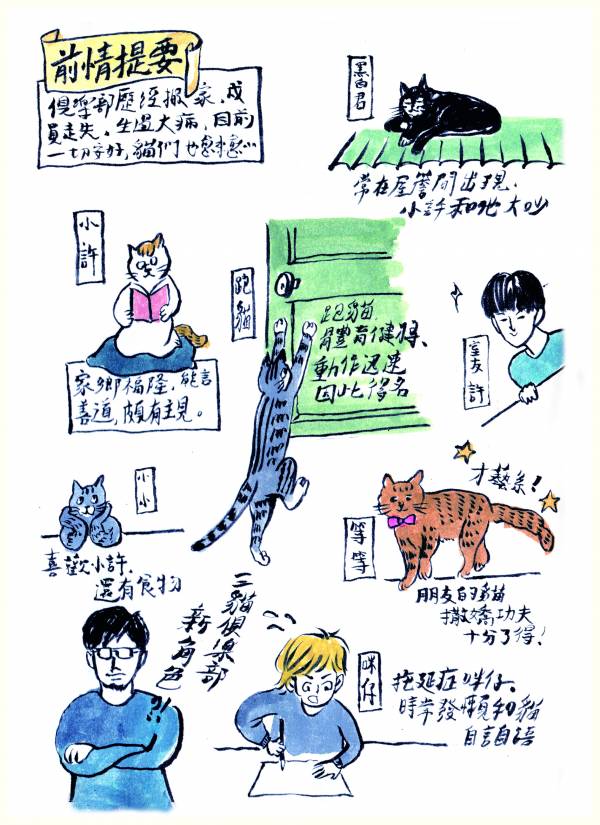 前情提要
俱樂部歷經搬家、成
員走失、生過大病,目前
一切安好,貓們也愈來愈⋯
黑白君
常在屋簷間出現.
小許和牠大吵
小許
家鄉福隆,能言
善道,頗有主見。
跑貓
跑貓
體育健將、
動作迅速
因此得名
室友 許
小小
喜歡小許.
還有食物
等等
才藝系!
朋友的貓
撒嬌功夫
十分了得!
三貓俱樂部
新角色
?!
咪仔
拖延症咪仔、
時常發懶和貓
自言自語